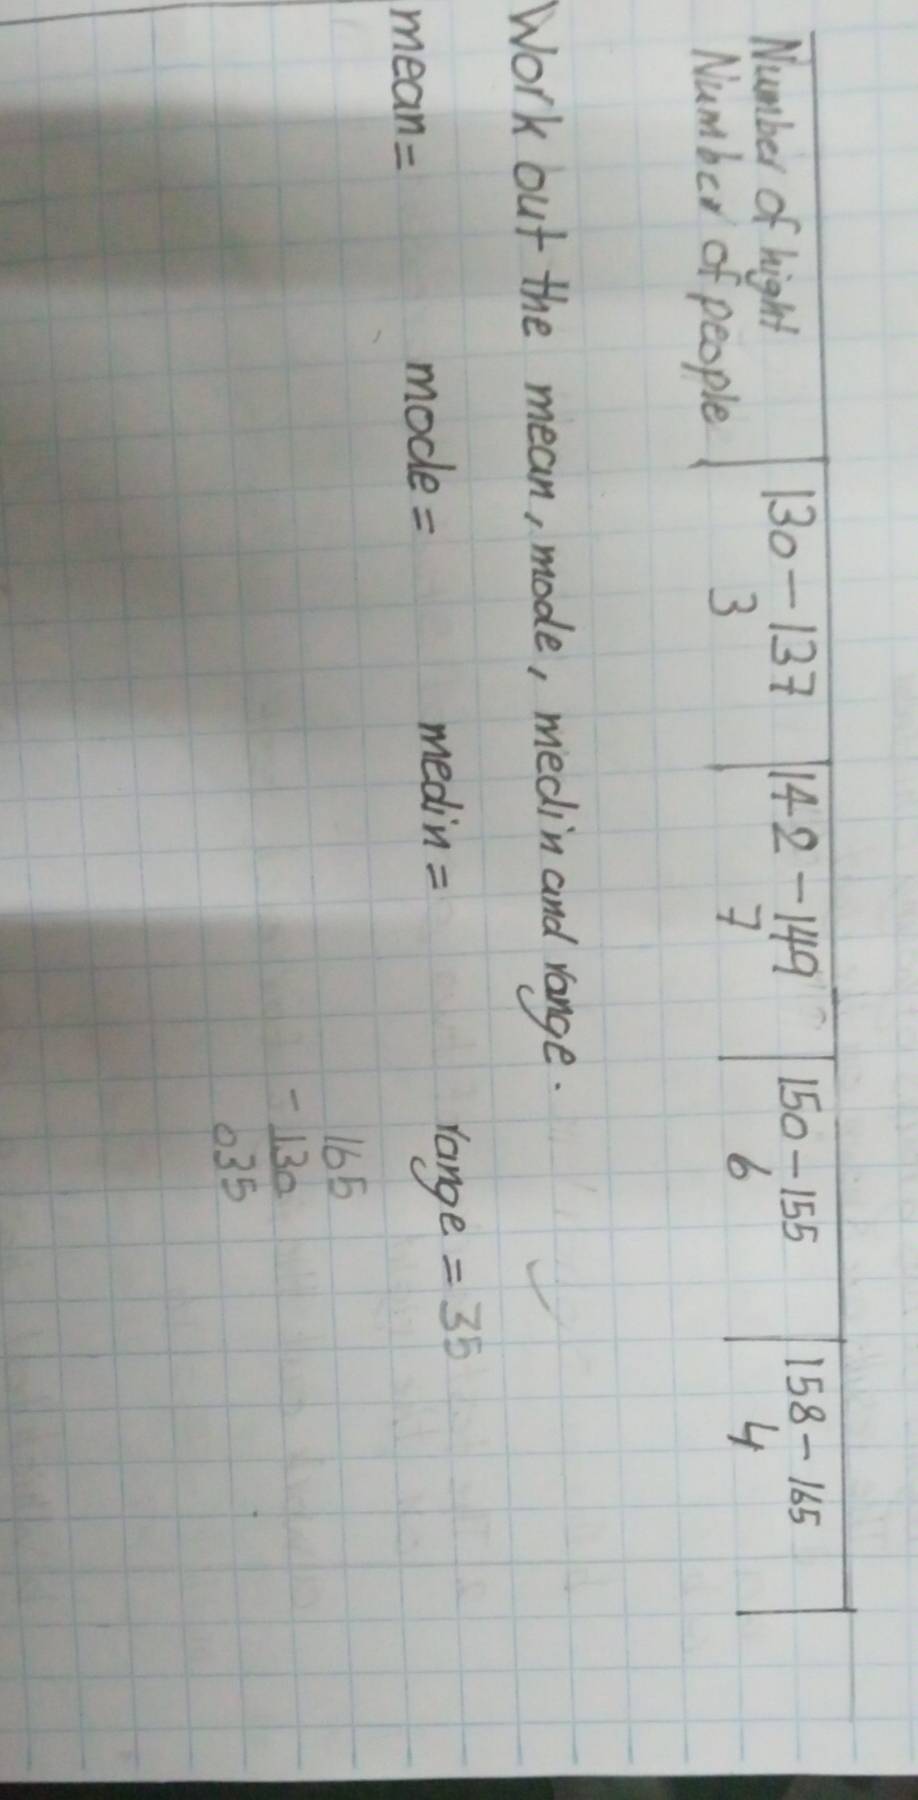 Number of hight | 130-137 | 142-149 | 150-155 | 158-165
Number of people | 3 | 7 | 6 | 4
Work out the mean, mode, medin and range.
mean= mode= medin= range=35
165
-130
035